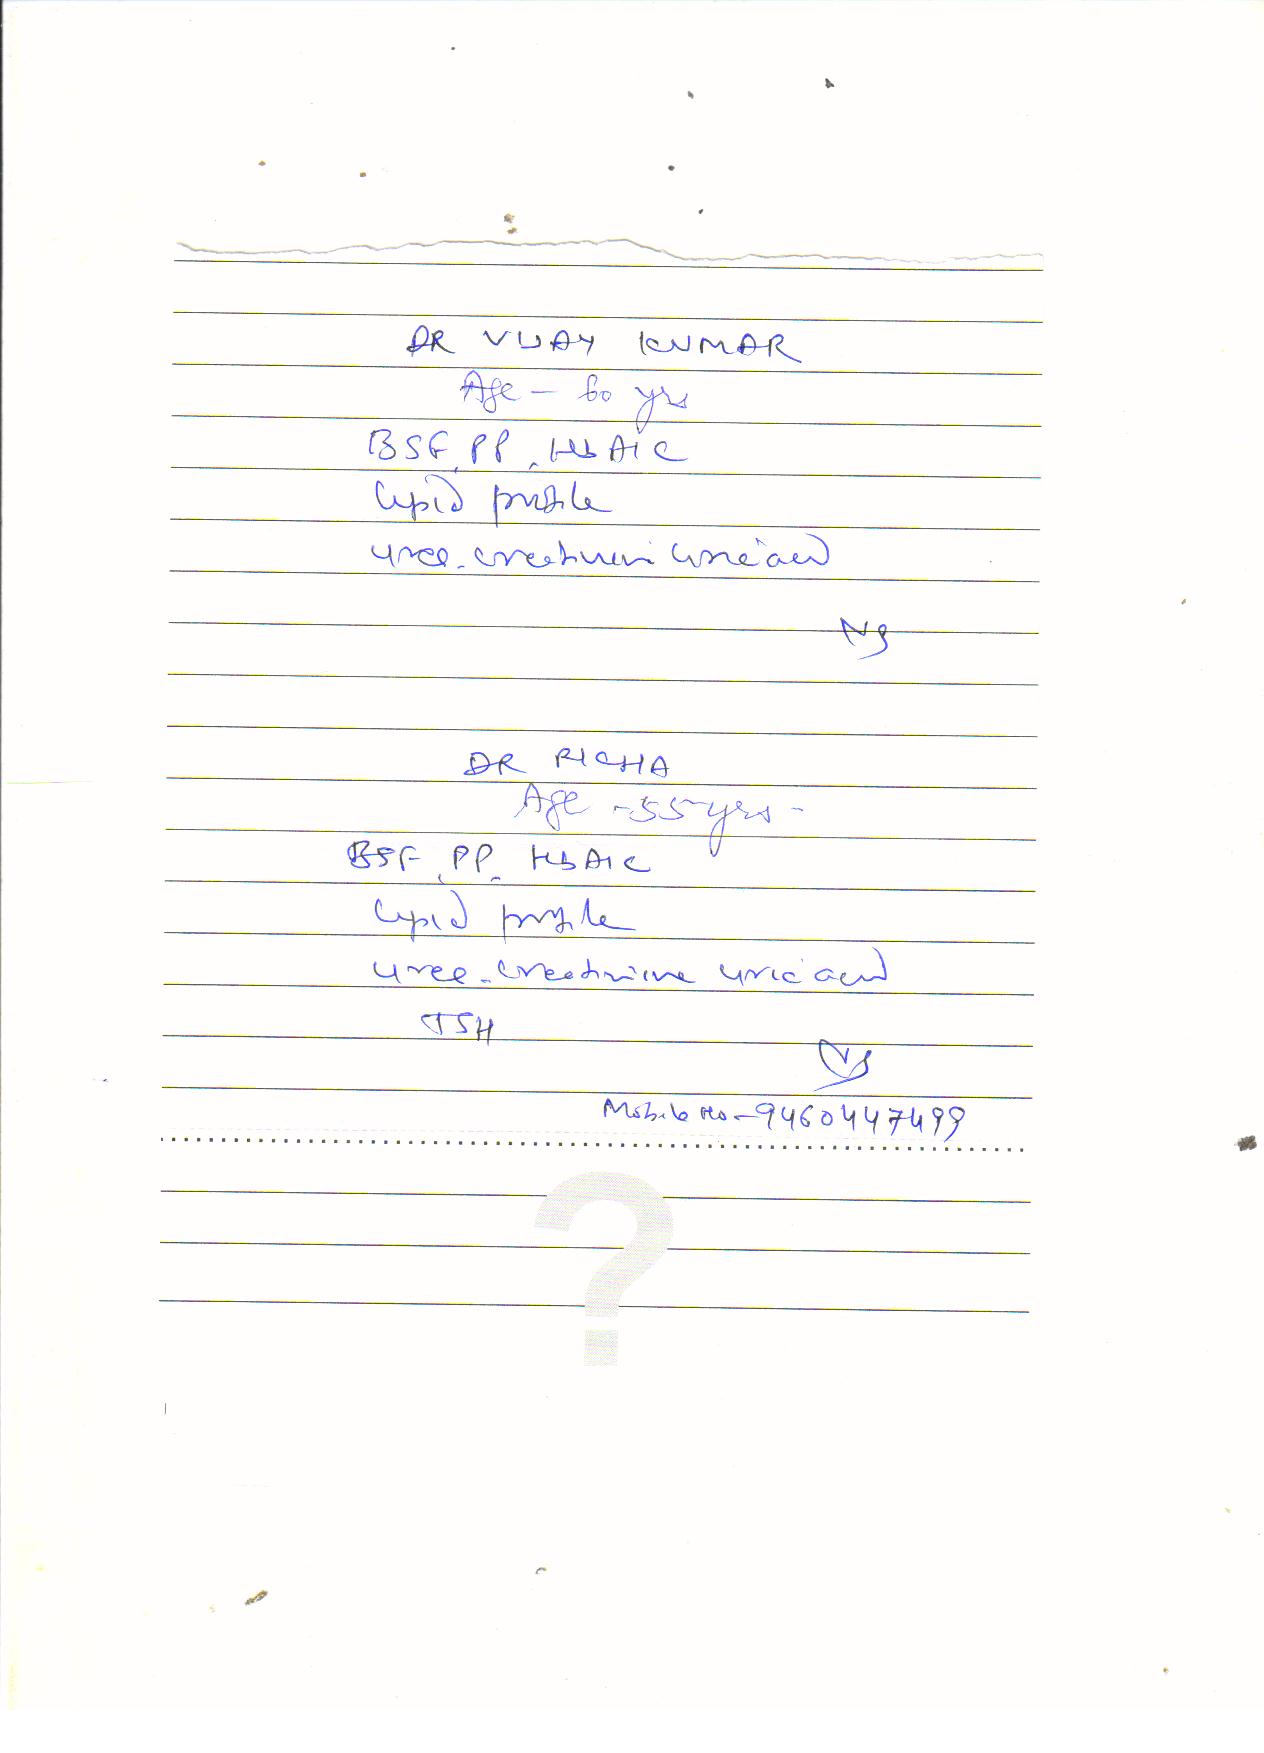 DR VIJAY KUMAR
Age - 60 yrs
BSF, PP, HbA1C
Lipid profile
Urea, creatinine uric acid
DR RICHA
Age - 55 yrs -
BSF, PP, HbA1C
Lipid profile
Urea, creatinine uric acid
TSH
Mobile No - 9460447499
?